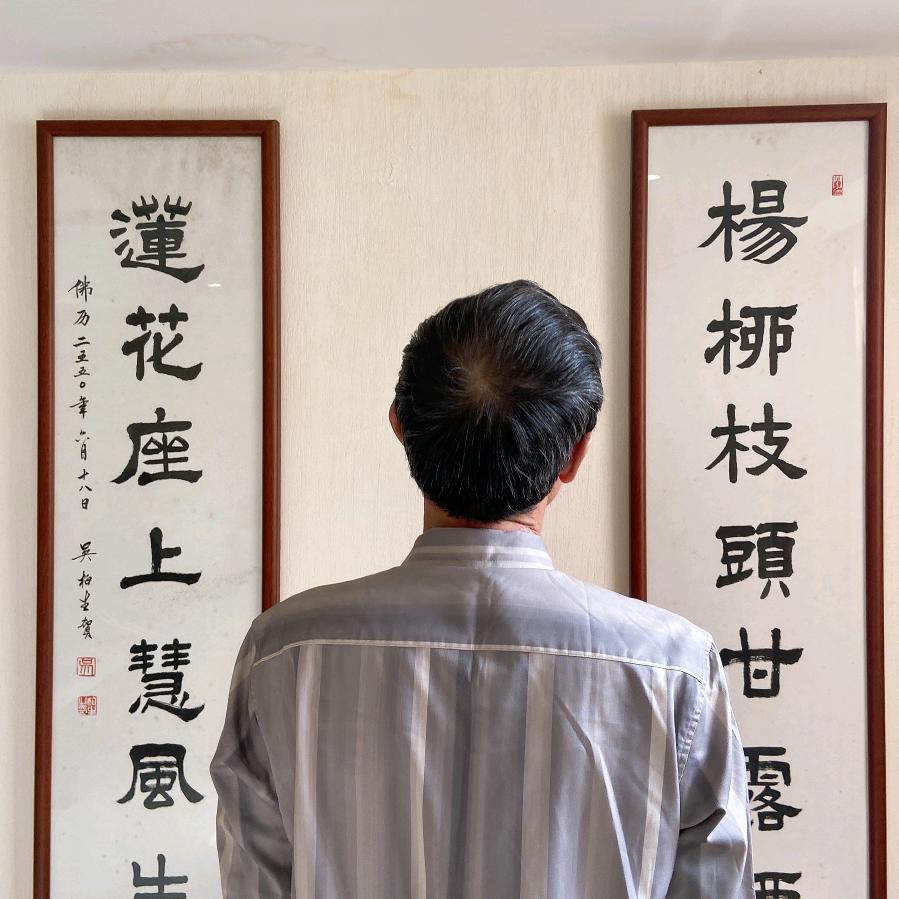 楊柳枝頭甘露
蓮花座上慧風生
佛历二五五〇年六月十八日 吴柏生賀